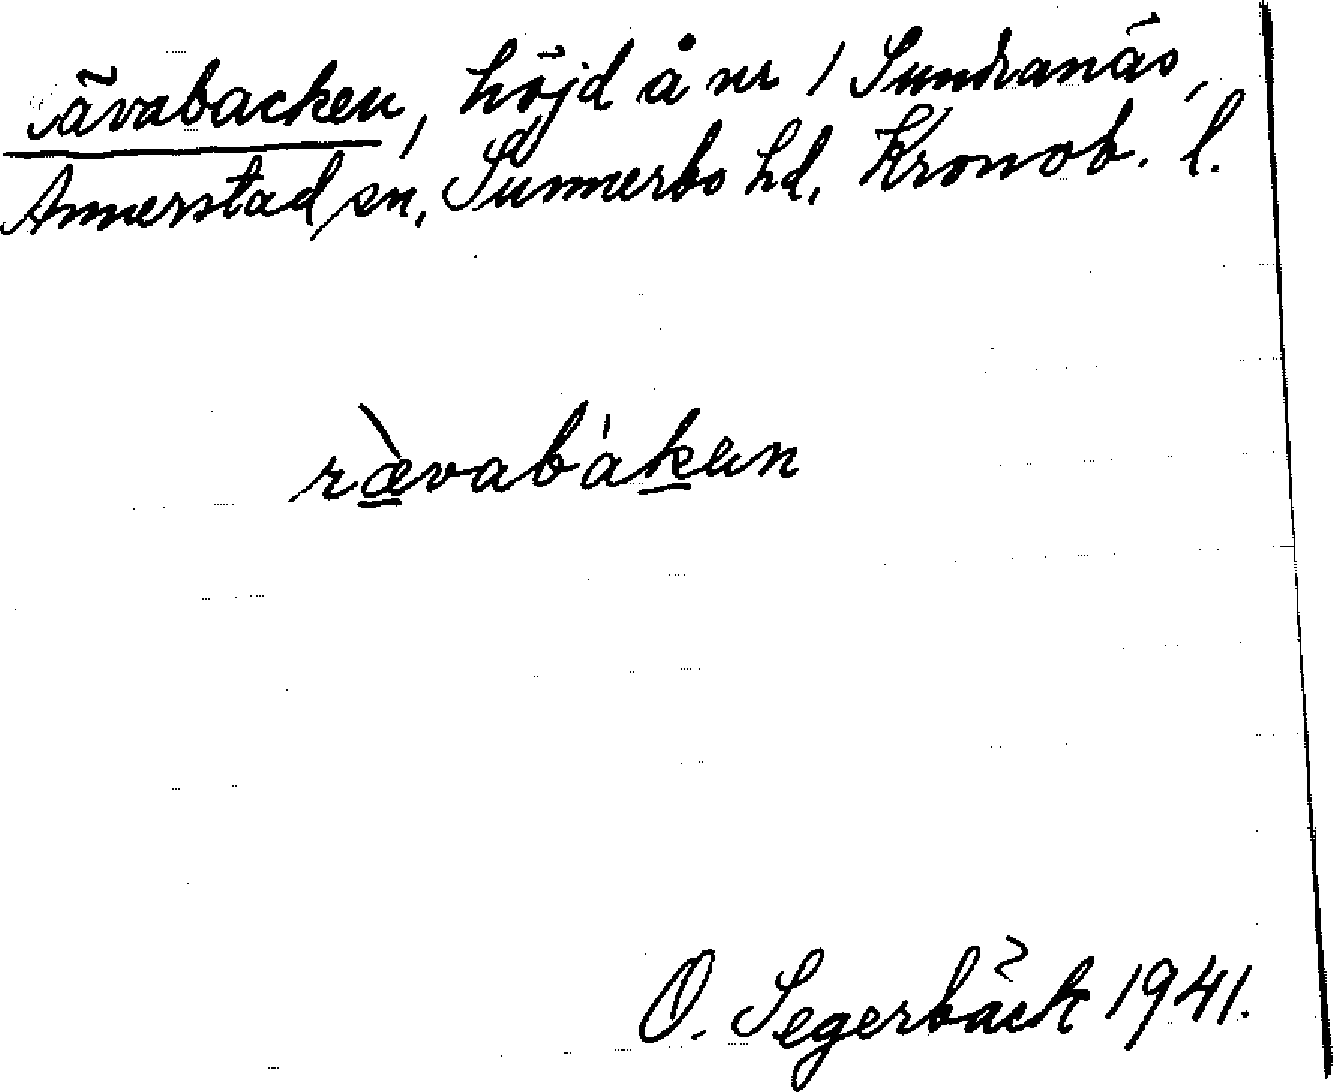 Rävabacken, höjd å nr 1 Sundranäs,
Annerstad sn, Sunnerbo hd, Kronob. l.
rævabaken
O. Segerbäck 1941.